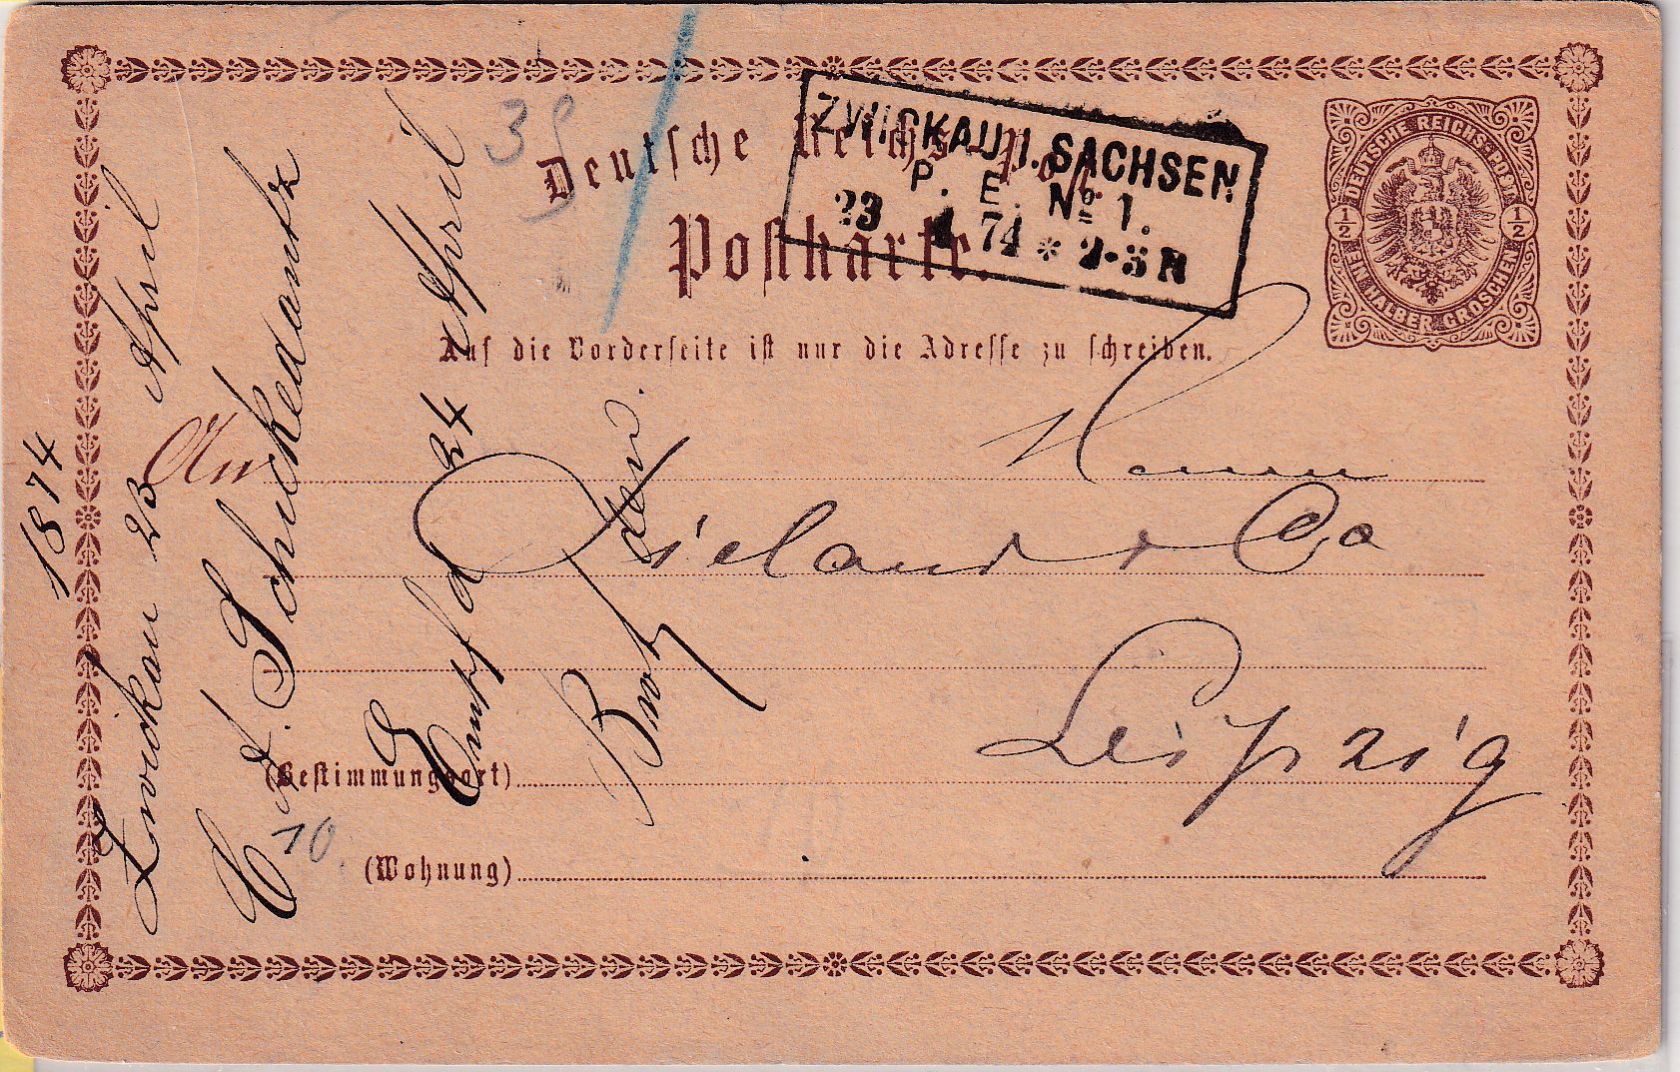 39
Deutsche Reichs-Post.
Postkarte.
ZWICKAU I. SACHSEN
P. E. No 1.
23 4 74 * 2-3 N
DEUTSCHE REICHS-POST
1/2 1/2
EIN HALBER GROSCHEN
Auf die Vorderseite ist nur die Adresse zu schreiben.
An
Herrn
& Co
Leipzig
(Bestimmungsort)
(Wohnung)
1874
Zwickau 23 April
C. A. Schickedantz
Empfa 24 April
Bwtz den
10